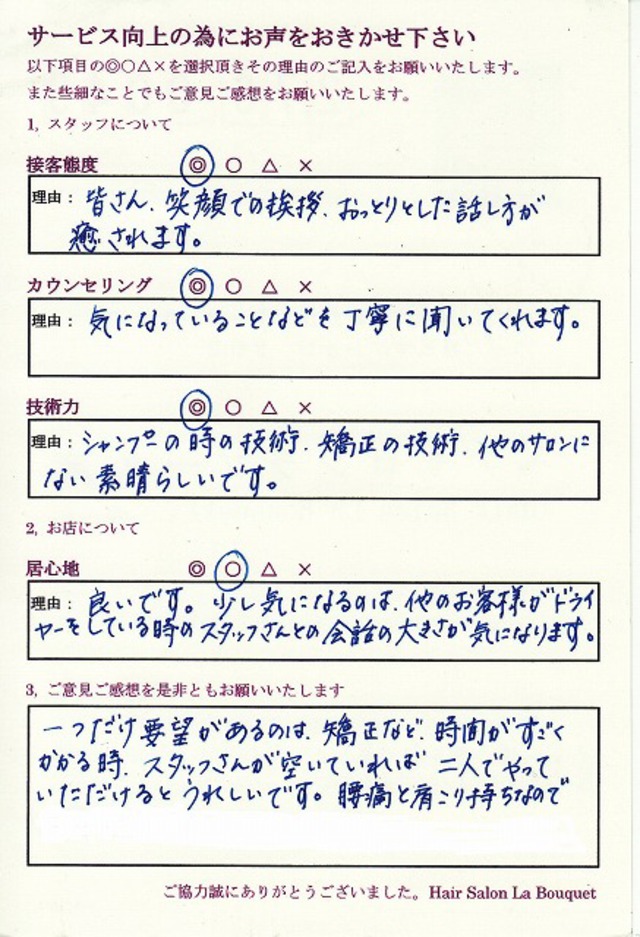 サービス向上の為にお声をおきかせ下さい
以下項目の◎○△×を選択頂きその理由のご記入をお願いいたします。
また些細なことでもご意見ご感想をお願いいたします。
1, スタッフについて
接客態度 ◎ ○ △ ×
理由： 皆さん、笑顔での挨拶、おっとりとした話し方が
癒されます。
カウンセリング ◎ ○ △ ×
理由： 気になっていることなどを丁寧に聞いてくれます。
技術力 ◎ ○ △ ×
理由： シャンプーの時の技術、矯正の技術、他のサロンに
ない素晴らしいです。
2, お店について
居心地 ◎ ○ △ ×
理由： 良いです。少し気になるのは、他のお客様がドライ
ヤーをしている時のスタッフさんとの会話の大きさが気になります。
3, ご意見ご感想を是非ともお願いいたします
一つだけ要望があるのは、矯正など、時間がすごく
かかる時、スタッフさんが空いていれば二人でやって
いただけるとうれしいです。腰痛と肩こり持ちなので
ご協力誠にありがとうございました。Hair Salon La Bouquet